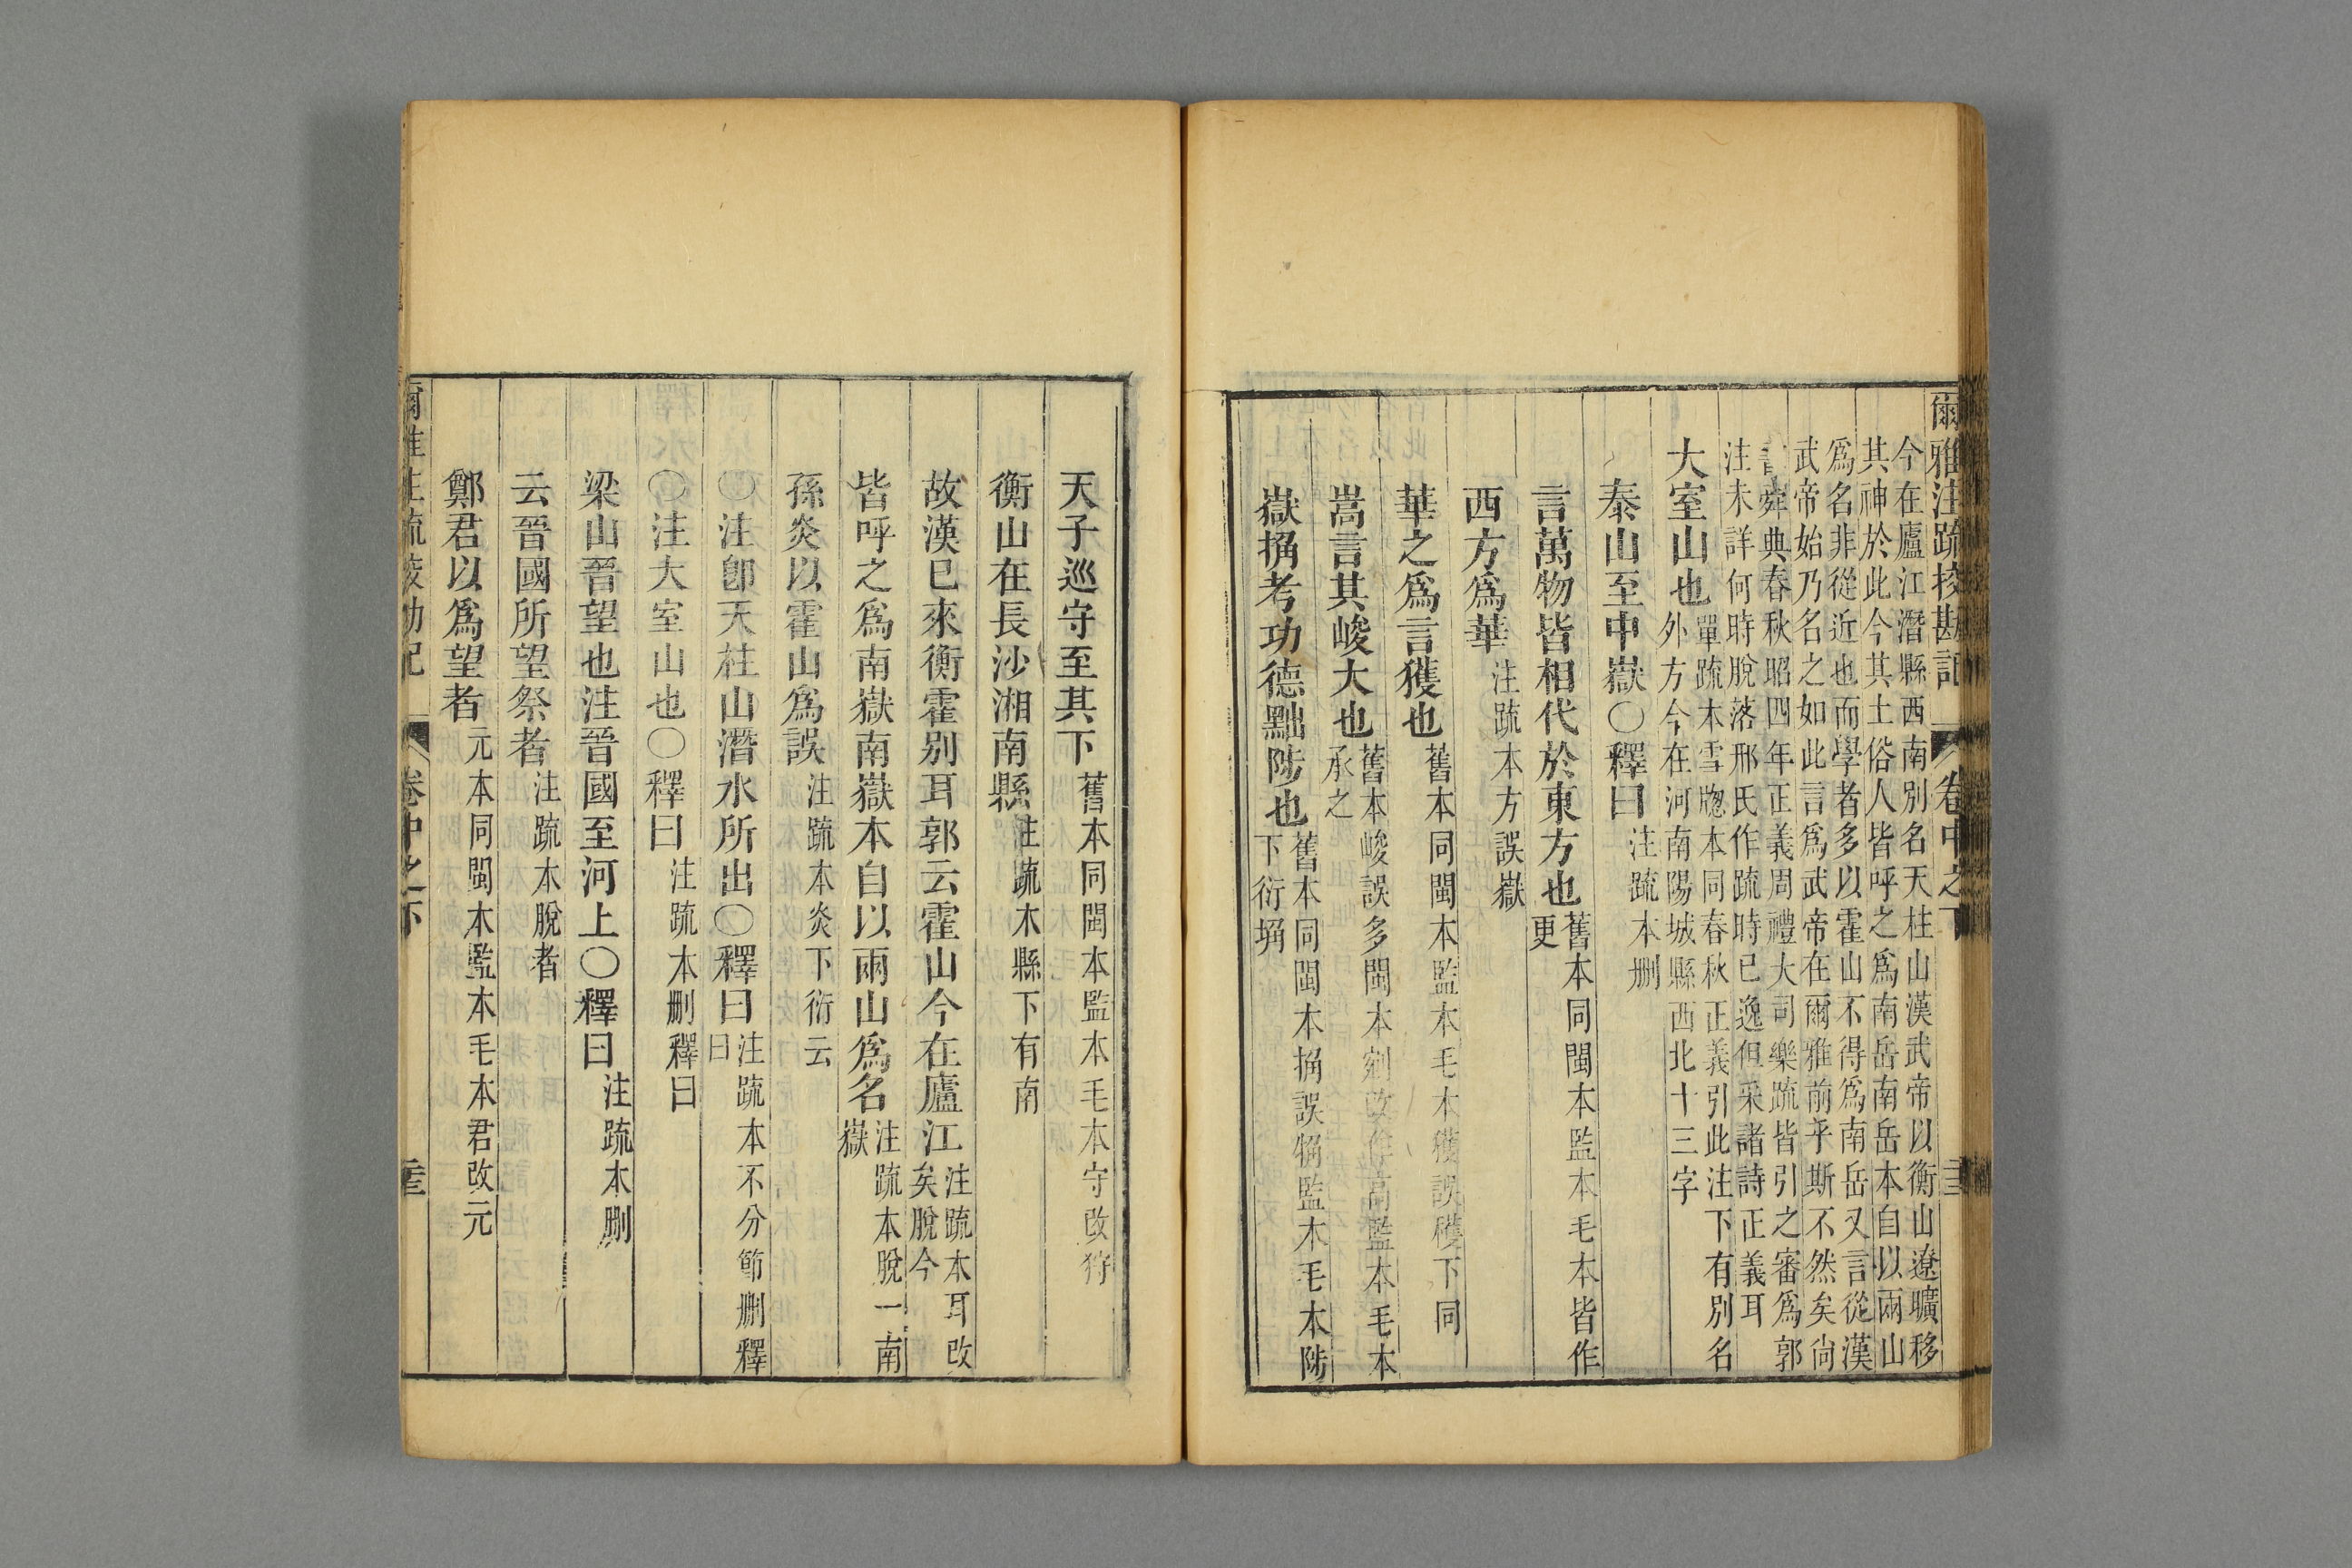 爾雅注疏挍勘記 卷中之下
今在廬江潛縣西南別名天柱山漢武帝以衡山遼曠移
其神於此今其土俗人皆呼之爲南岳南岳本自以兩山
爲名非從近也而學者多以霍山不得爲南岳又言從漢
武帝始乃名之如此言爲武帝在爾雅前乎斯不然矣尙
書舜典春秋昭四年正義周禮大司樂疏皆引之審爲郭
注未詳何時脫落邢氏作疏時已逸但采諸詩正義耳
大室山也 單疏本雪牕本同春秋正義引此注下有別名
外方今在河南陽城縣西北十三字
泰山至中嶽〇釋曰 注疏本刪
言萬物皆相代於東方也 舊本同閩本監本毛本皆作
更
西方爲華 注疏本方誤嶽
華之爲言獲也 舊本同閩本監本毛本獲誤穫下同
嵩言其峻大也 舊本峻誤多閩本剜改作高監本毛本
承之
嶽捔考功德黜陟也 舊本同閩本捔誤監本毛本陟
下衍埆
天子巡守至其下 舊本同閩本監本毛本守改狩
衡山在長沙湘南縣 注疏本縣下有南
故漢已來衡霍別耳郭云霍山今在廬江 注疏本耳改
矣脫今
皆呼之爲南嶽南嶽本自以兩山爲名 注疏本脫一南
嶽
孫炎以霍山爲誤 注疏本炎下衍云
〇注卽天柱山潛水所出〇釋曰 注疏本不分節刪釋
曰
〇注大室山也〇釋曰 注疏本刪釋曰
梁山晉望也注晉國至河上〇釋曰 注疏本刪
云晉國所望祭者 注疏本脫者
鄭君以爲望者 元本同閩本監本毛本君改元
爾雅注疏挍勘記 卷中之下